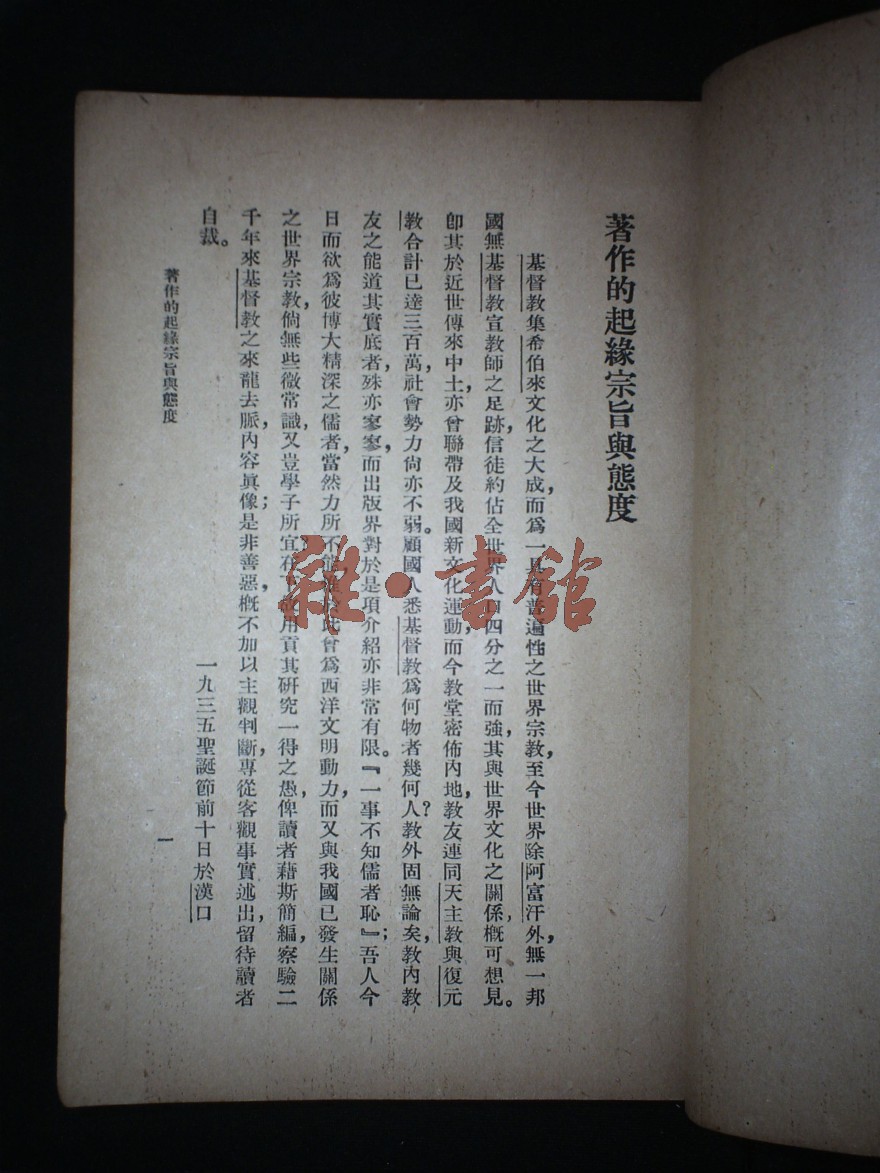 著作的起緣宗旨與態度
基督教集希伯來文化之大成，而爲一具有普遍性之世界宗教，至今世界除阿富汗外，無一邦
國無基督教宣教師之足跡，信徒約佔全世界人口四分之一而強，其與世界文化之關係，概可想見。
卽其於近世傳來中土，亦曾聯帶及我國新文化運動，而今教堂密佈內地，教友連同天主教與復元
教合計已達三百萬，社會勢力尙亦不弱。顧國人悉基督教爲何物者幾何人？教外固無論矣，教內教
友之能道其實底者，殊亦寥寥，而出版界對於是項介紹亦非常有限。『一事不知儒者恥』；吾人今
日而欲爲彼博大精深之儒者，當然力所不能，曾爲西洋文明動力，而又與我國已發生關係
之世界宗教，倘無些微常識，又豈學子所宜在用貢其研究一得之愚，俾讀者藉斯簡編，察驗二
千年來基督教之來龍去脈，內容眞像；是非善惡，概不加以主觀判斷，專從客觀事實述出，留待讀者
自裁。
一九三五聖誕節前十日於漢口
著作的起緣宗旨與態度
一
雜·書館